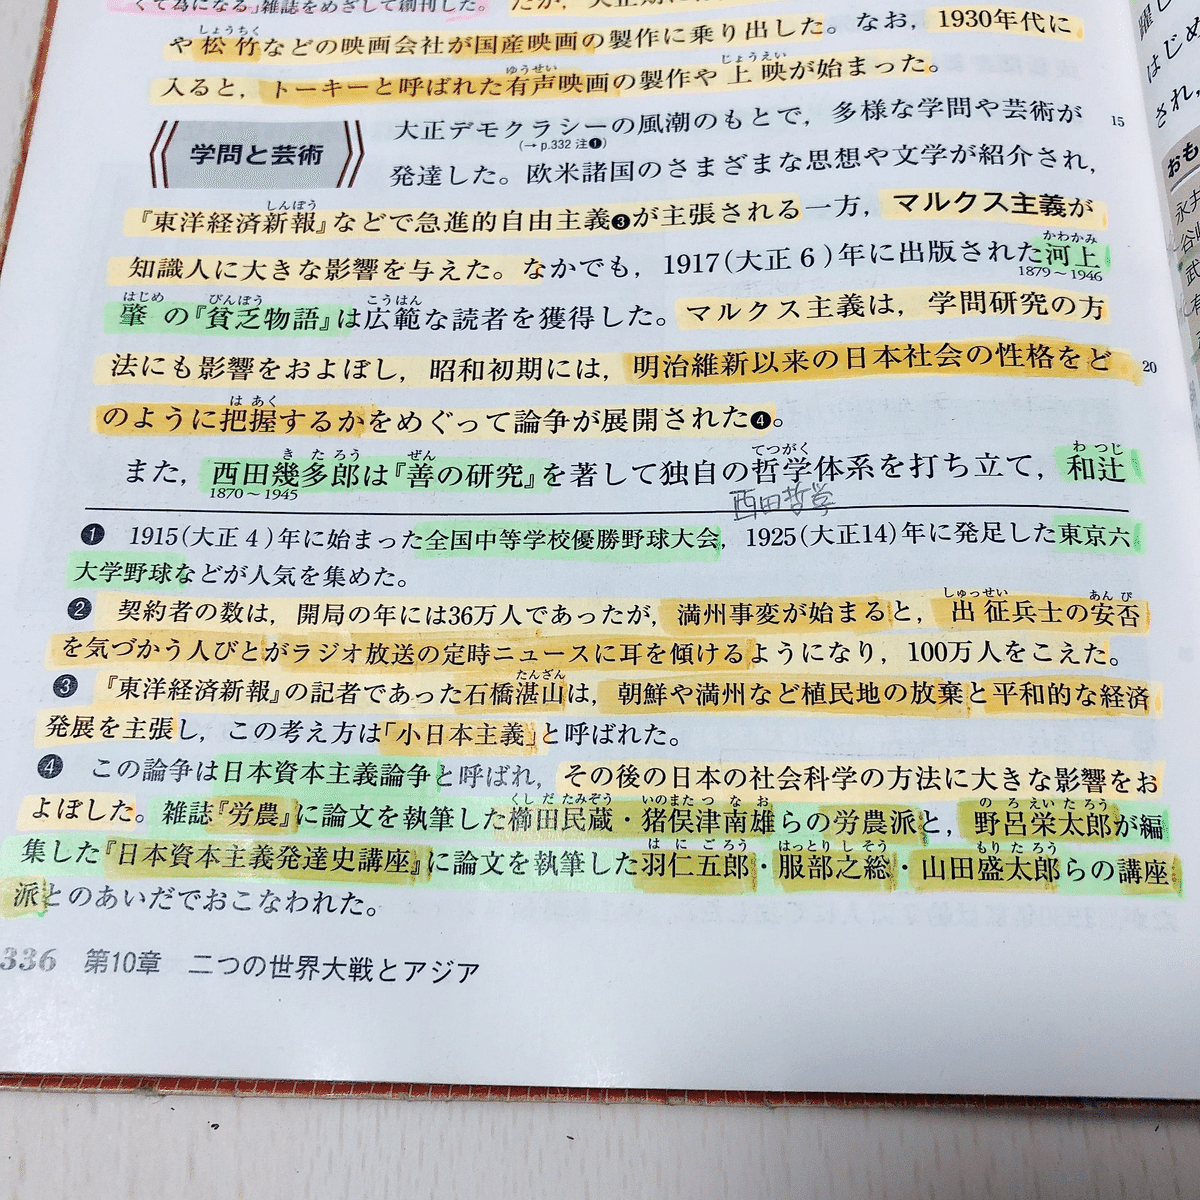 くて為になる」雑誌をめざして創刊した。
や松竹などの映画会社が国産映画の製作に乗り出した。なお，1930年代に
入ると，トーキーと呼ばれた有声映画の製作や上映が始まった。
学問と芸術
大正デモクラシーの風潮のもとで，多様な学問や芸術が 15
(→p.332 注❶)
発達した。欧米諸国のさまざまな思想や文学が紹介され，
『東洋経済新報』などで急進的自由主義❸が主張される一方，マルクス主義が
知識人に大きな影響を与えた。なかでも，1917(大正6)年に出版された河上
1879～1946
肇の『貧乏物語』は広範な読者を獲得した。マルクス主義は，学問研究の方
法にも影響をおよぼし，昭和初期には，明治維新以来の日本社会の性格をど 20
のように把握するかをめぐって論争が展開された❹。
また，西田幾多郎は『善の研究』を著して独自の哲学体系を打ち立て，和辻
1870～1945
西田哲学
❶ 1915(大正4)年に始まった全国中等学校優勝野球大会，1925(大正14)年に発足した東京六
大学野球などが人気を集めた。
❷ 契約者の数は，開局の年には36万人であったが，満州事変が始まると，出征兵士の安否
を気づかう人びとがラジオ放送の定時ニュースに耳を傾けるようになり，100万人をこえた。
❸ 『東洋経済新報』の記者であった石橋湛山は，朝鮮や満州など植民地の放棄と平和的な経済
発展を主張し，この考え方は「小日本主義」と呼ばれた。
❹ この論争は日本資本主義論争と呼ばれ，その後の日本の社会科学の方法に大きな影響をお
よぼした。雑誌『労農』に論文を執筆した櫛田民蔵・猪俣津南雄らの労農派と，野呂栄太郎が編
集した『日本資本主義発達史講座』に論文を執筆した羽仁五郎・服部之総・山田盛太郎らの講座
派とのあいだでおこなわれた。
336 第10章 二つの世界大戦とアジア